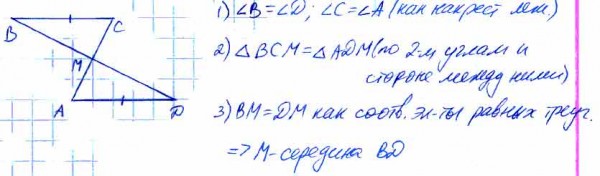 B
C
M
A
D
1) ∠B=∠D; ∠C=∠A (как накрест леж.)
2) △BCM=△ADM (по 2-м углам и
стороне между ними)
3) BM=DM как соотв. эл-ты равных треуг.
=> M-середина BD